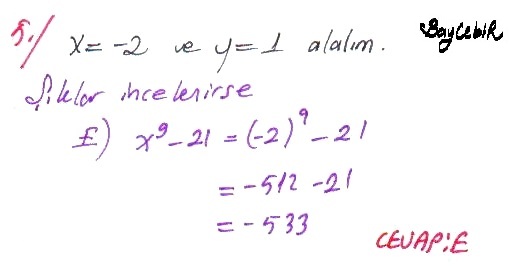 5./ x = -2 ve y = 1 alalım. BayCebiR
Şıklar incelenirse
E) x⁹ - 21 = (-2)⁹ - 21
= -512 - 21
= -533
CEVAP: E